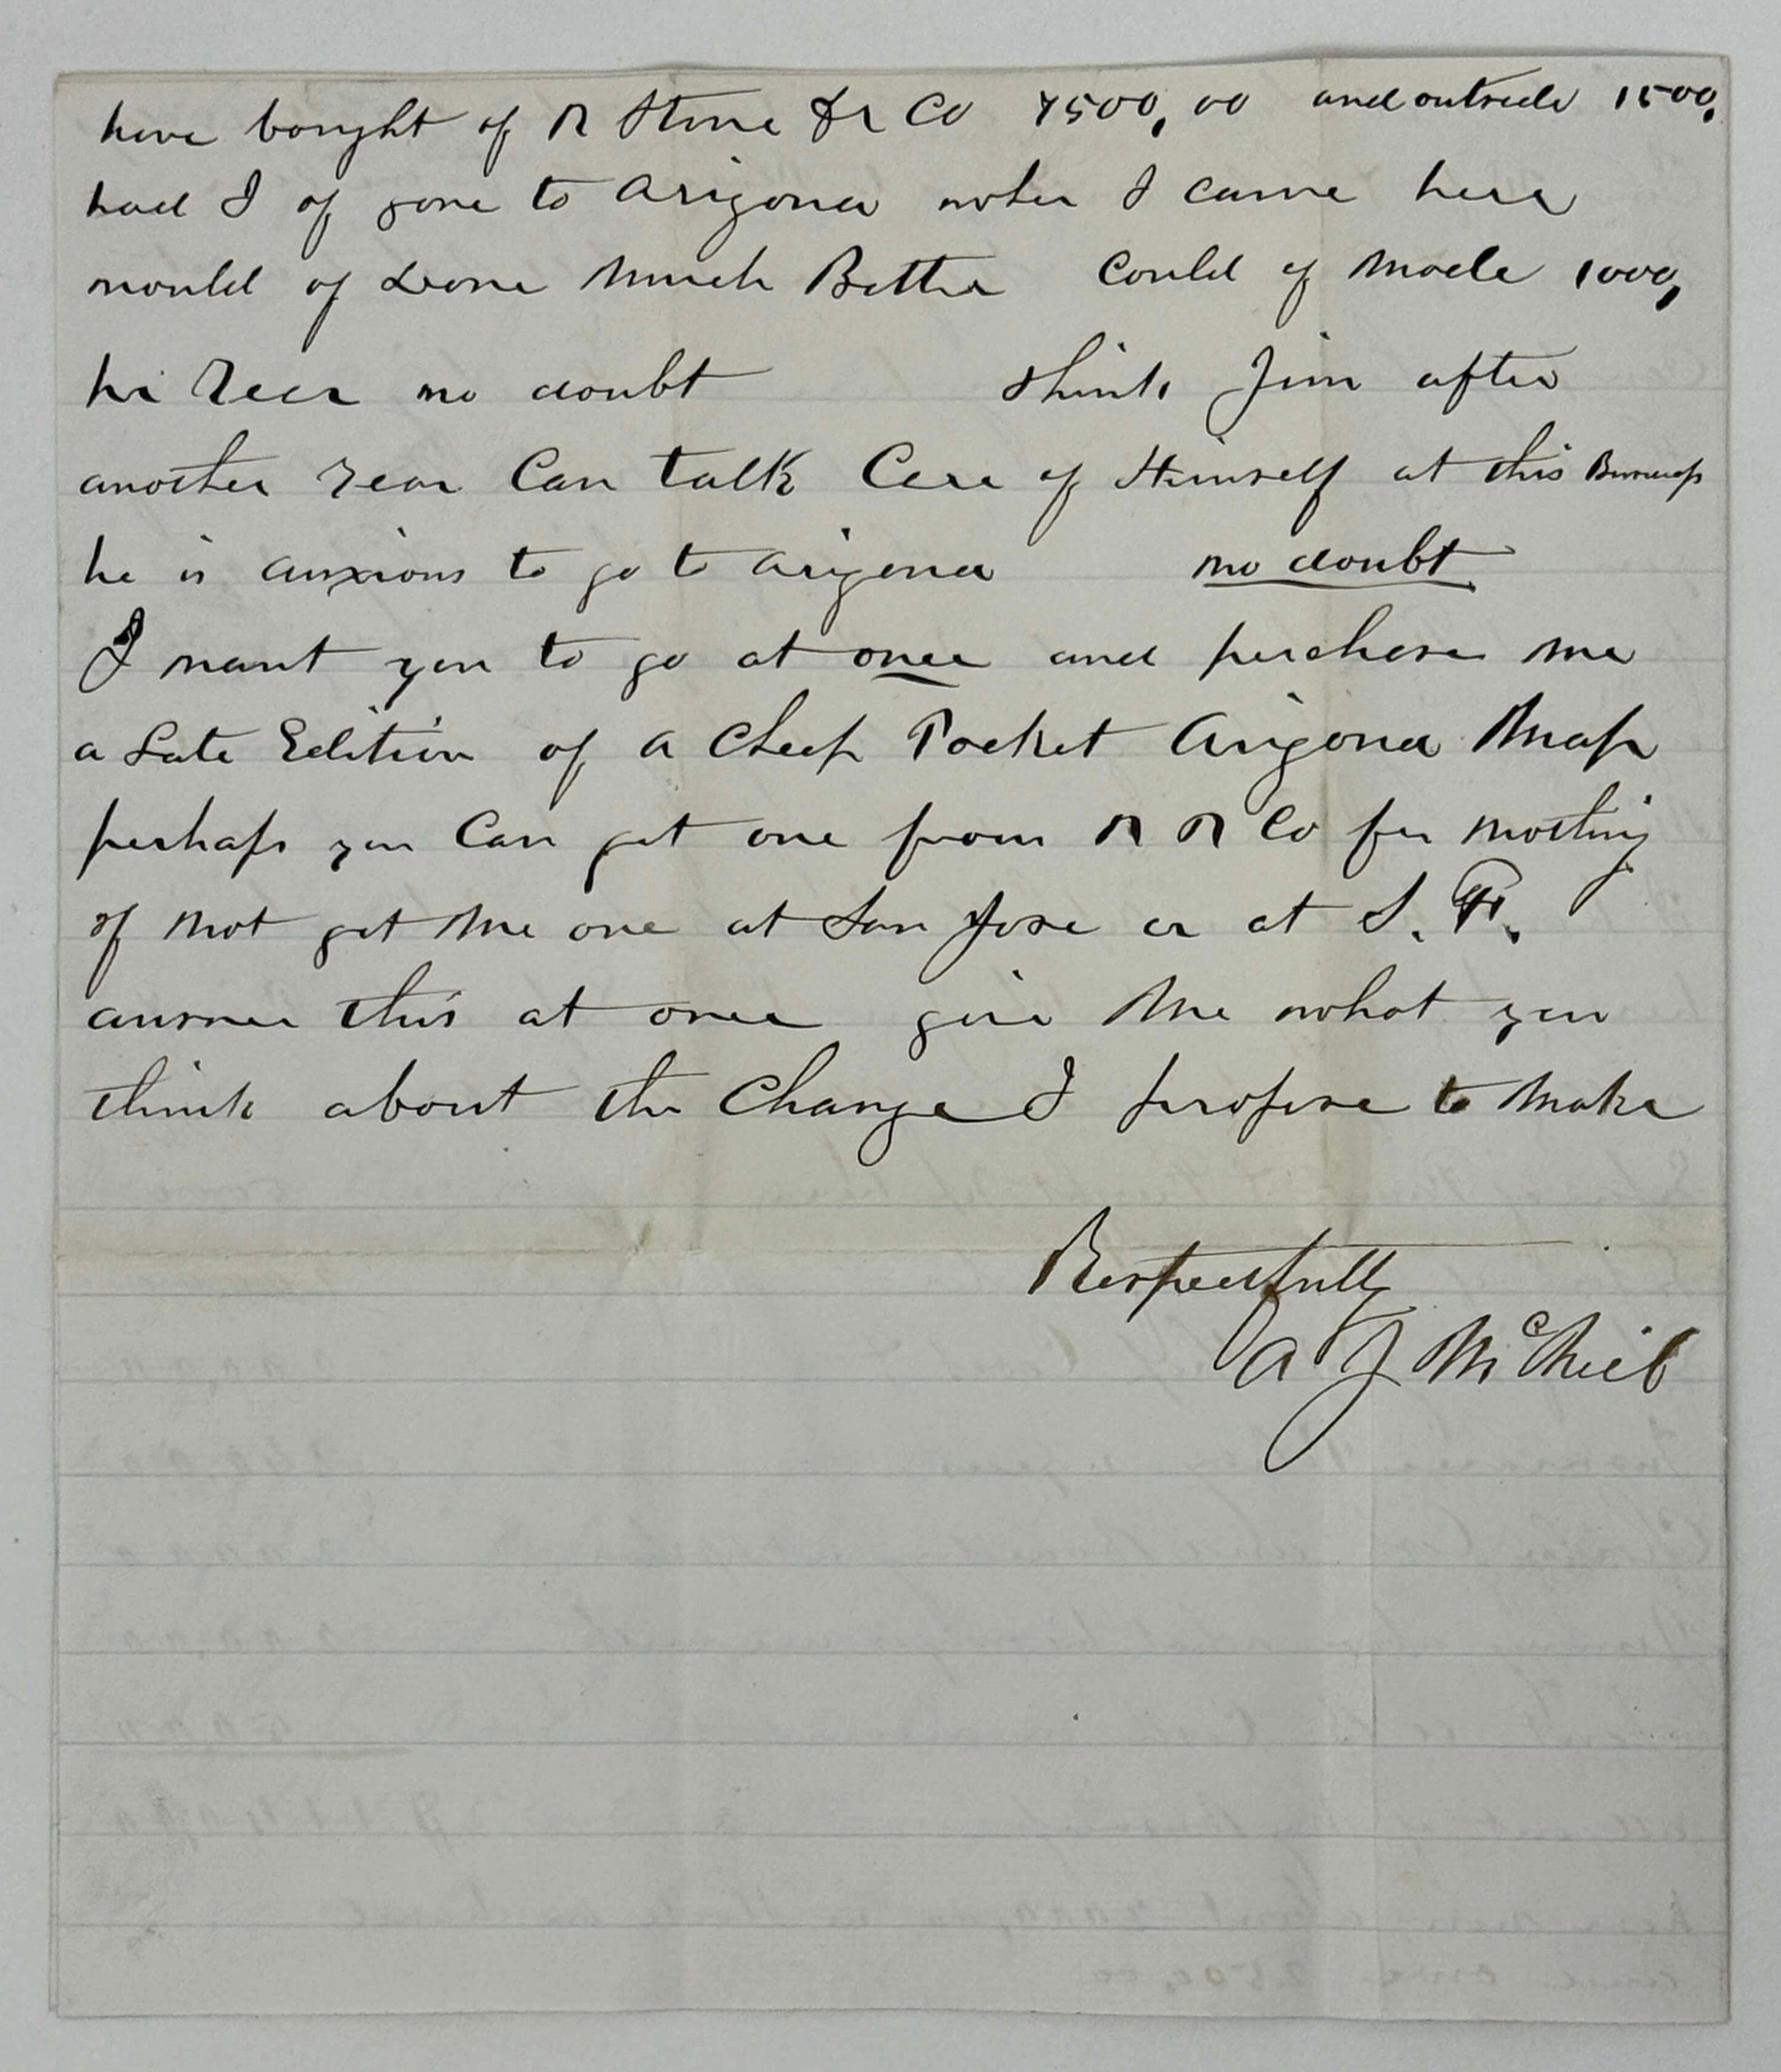 have bought of R Stone & Co 7500,00 and outside 1500,
had I of gone to Arizona when I came here
would of Done Much Better Could of Made 1000,
pr Year no doubt think Jim after
another Year Can talk Care of Himself at this Business
he is anxious to go to Arizona no doubt
I want you to go at once and purchase me
a Late Edition of a Cheap Pocket Arizona Map
perhaps you Can get one from R R Co for Nothing
if Not get Me one at San Jose or at S. F.
answer this at once give Me what you
think about the Change I propose to Make
Respectfully
A J McNeil